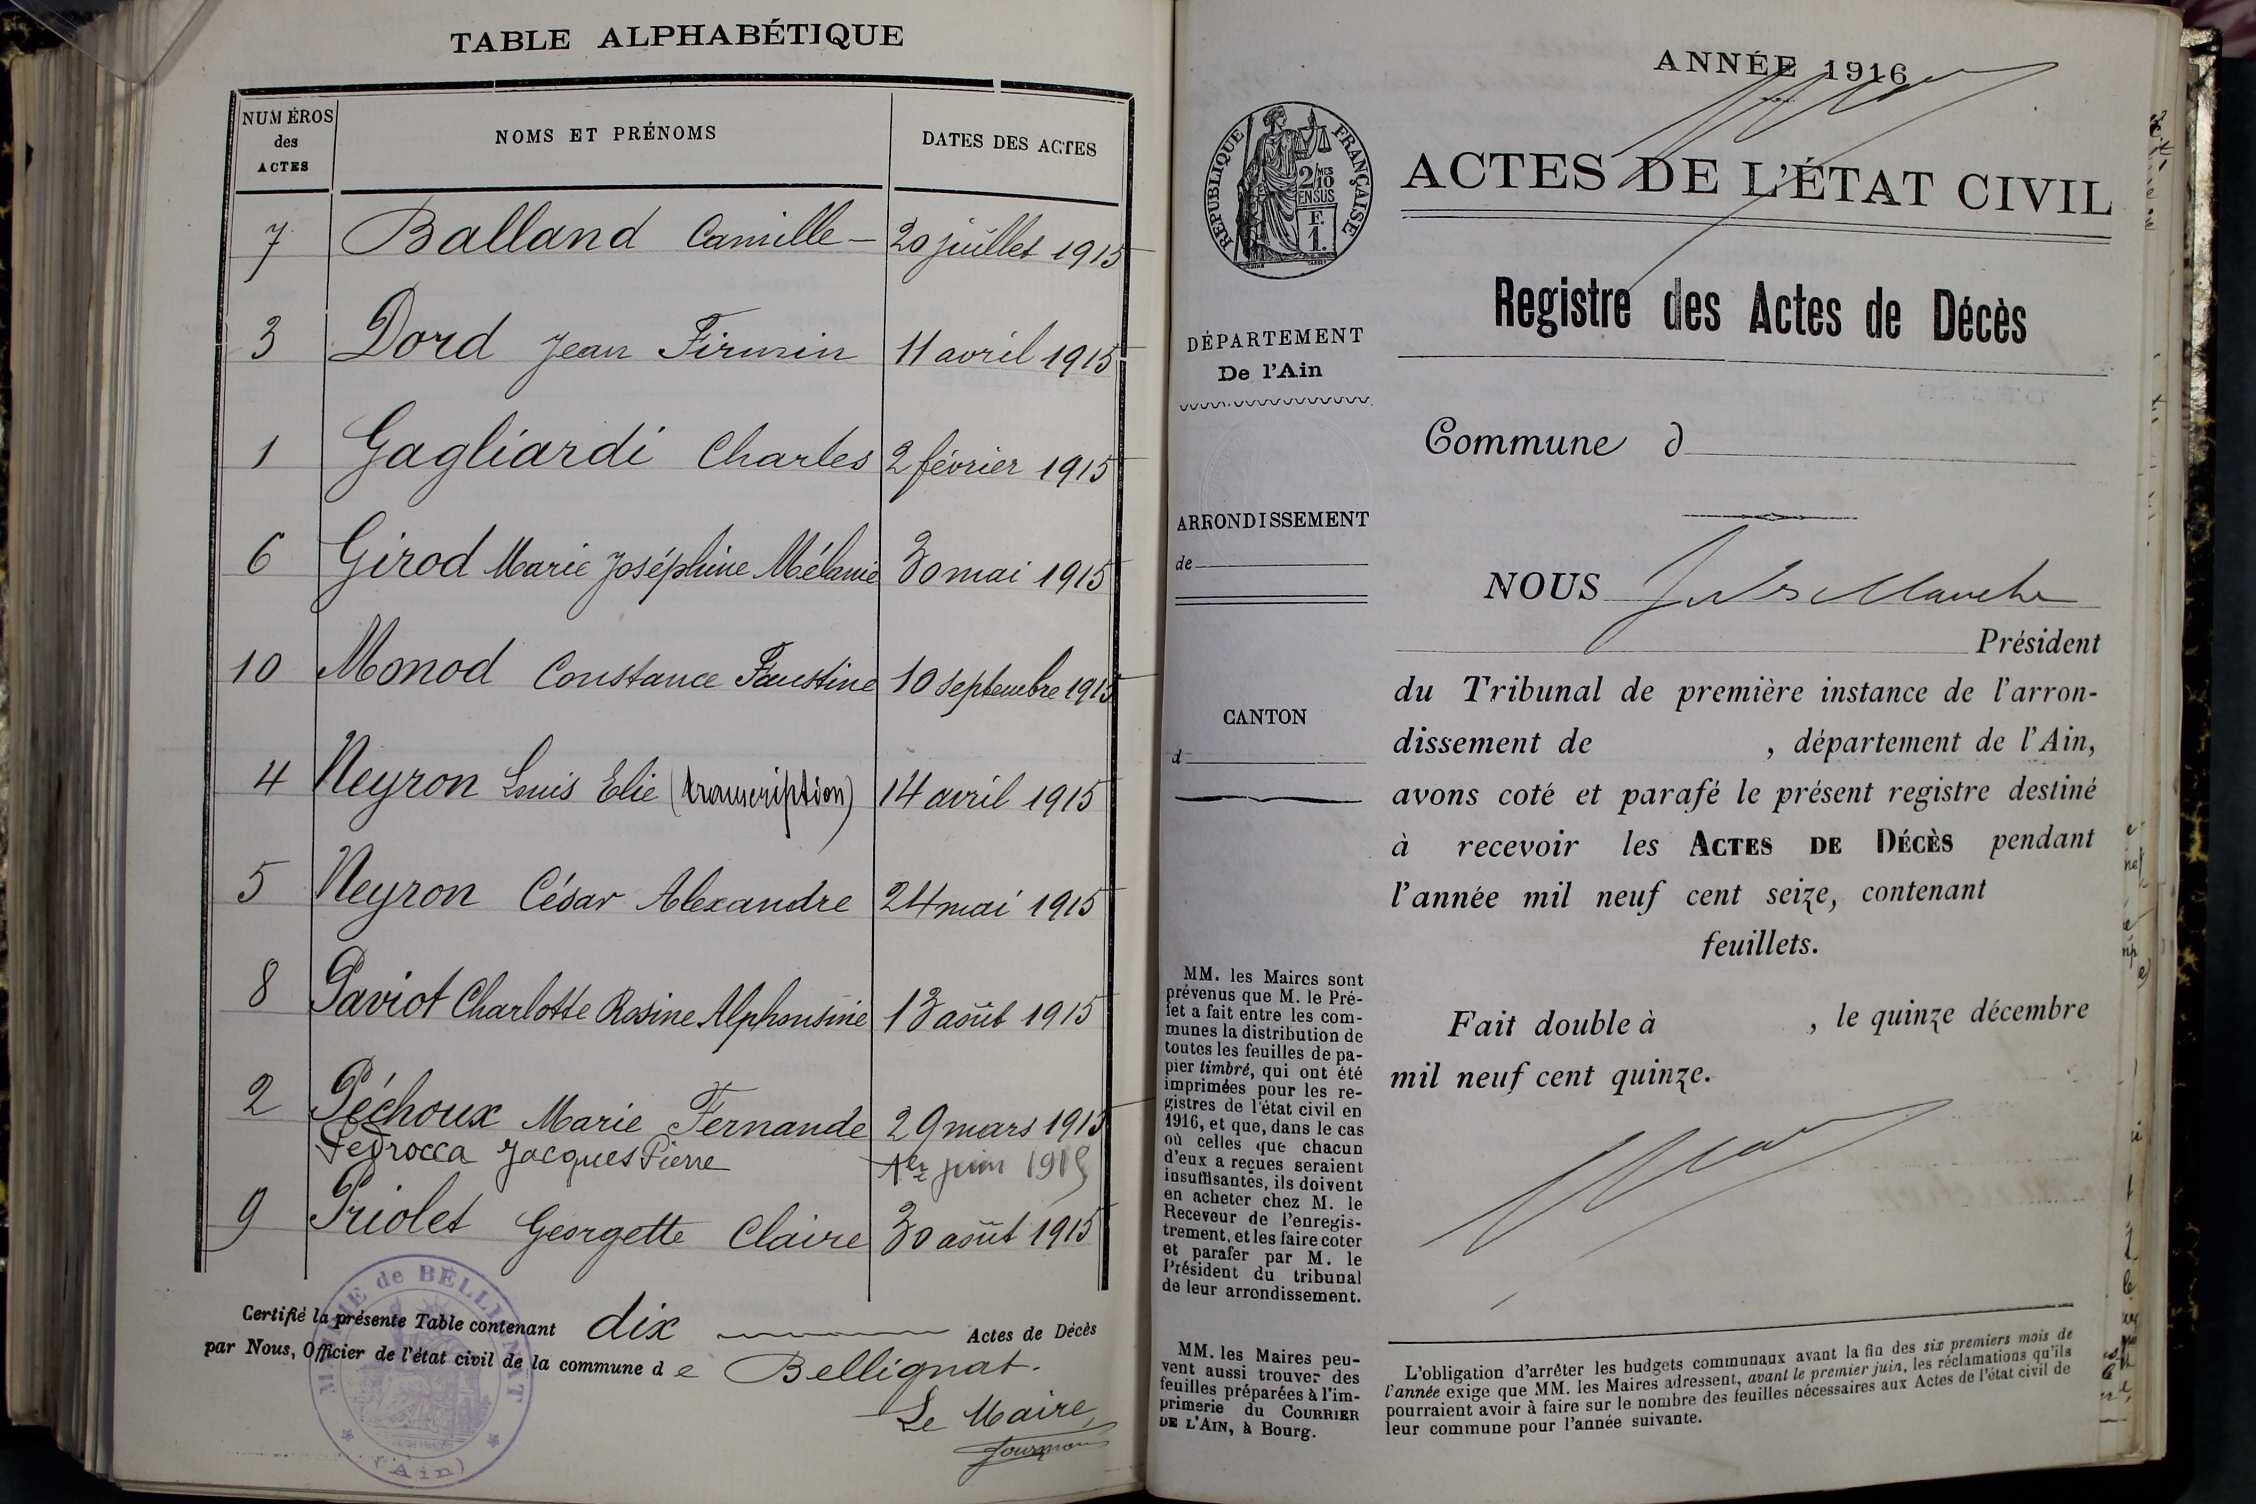 TABLE ALPHABÉTIQUE
NUMÉROS des ACTES
NOMS ET PRÉNOMS
DATES DES ACTES
7 Balland Camille — 20 juillet 1915
3 Dord Jean Firmin 11 avril 1915
1 Gagliardi Charles 2 février 1915
6 Girod Marie Joséphine Mélanie 30 mai 1915
10 Monod Constance Faustine 10 septembre 1915
4 Neyron Louis Elie (transcription) 14 avril 1915
5 Neyron César Alexandre 24 mai 1915
8 Paviot Charlotte Rosine Alphonsine 13 août 1915
2 Péchoux Marie Fernande 29 mars 1915
Pedrocca Jacques Pierre 1er juin 1915
9 Priolet Georgette Claire 30 août 1915
Certifié la présente Table contenant dix Actes de Décès
par Nous, Officier de l'état civil de la commune de Bellignat.
Le Maire,
MAIRIE de BELLIGNAT
(Ain)
ANNÉE 1916
RÉPUBLIQUE FRANÇAISE
2/10 MES
EN SUS
F.
1.
ACTES DE L'ÉTAT CIVIL
Registre des Actes de Décès
DÉPARTEMENT
De l'Ain
Commune d
ARRONDISSEMENT
de
NOUS
Président
CANTON
d
du Tribunal de première instance de l'arron-
dissement de , département de l'Ain,
avons coté et parafé le présent registre destiné
à recevoir les ACTES DE DÉCÈS pendant
l'année mil neuf cent seize, contenant
feuillets.
Fait double à , le quinze décembre
mil neuf cent quinze.
MM. les Maires sont
prévenus que M. le Pré-
fet a fait entre les com-
munes la distribution de
toutes les feuilles de pa-
pier timbré, qui ont été
imprimées pour les re-
gistres de l'état civil en
1916, et que, dans le cas
où celles que chacun
d'eux a reçues seraient
insuffisantes, ils doivent
en acheter chez M. le
Receveur de l'enregis-
trement, et les faire coter
et parafer par M. le
Président du tribunal
de leur arrondissement.
MM. les Maires peu-
vent aussi trouver des
feuilles préparées à l'im-
primerie du COURRIER
DE L'AIN, à Bourg.
L'obligation d'arrêter les budgets communaux avant la fin des six premiers mois de
l'année exige que MM. les Maires adressent, avant le premier juin, les réclamations qu'ils
pourraient avoir à faire sur le nombre des feuilles nécessaires aux Actes de l'état civil de
leur commune pour l'année suivante.